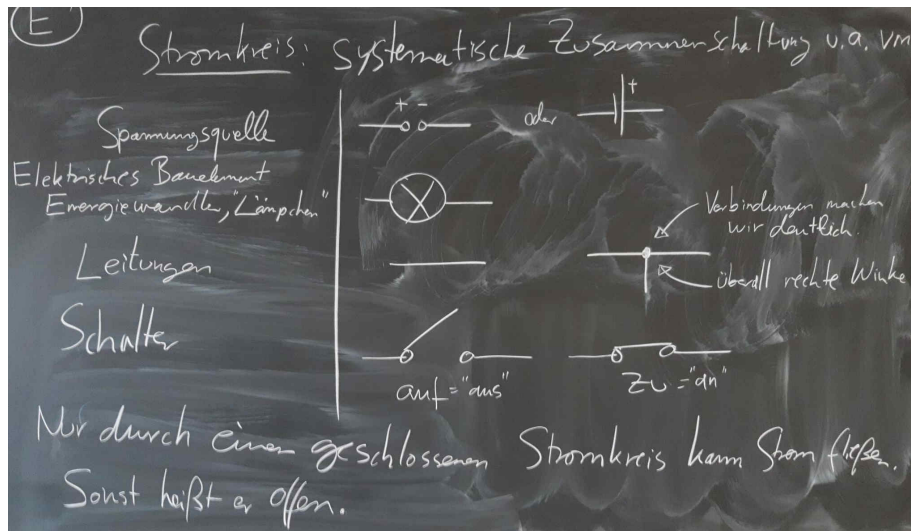 E
Stromkreis: Systematische Zusammenschaltung u.a. von
+ - oder +
Spannungsquelle
Elektrisches Bauelement
Energiewandler, "Lämpchen"
Verbindungen machen
wir deutlich.
Leitungen
überall rechte Winke
Schalter
auf = "aus" zu = "an"
Nur durch einen geschlossenen Stromkreis kann Strom fließen.
Sonst heißt er offen.